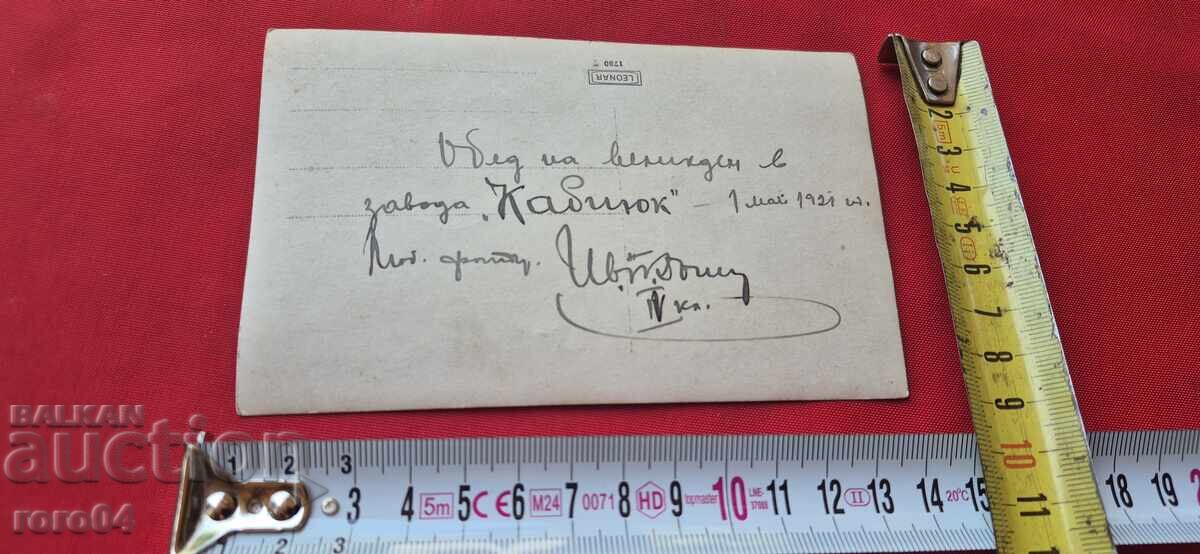 LEONAR
1780
Обед на великден в
завода "Кабиюк" - 1 май 1921 г.
Люб. фотогр. Ив. П.
IV кл.
BALKAN
auction
roro04
1 2 3
3 4 5m 5 CE 6 M24 7 0071 8 HD 9 topmaster 10 LNE-37088 11 12 II 13 14 20°C 15 18 19
2 3
2 5m 3 4 5 6 7 8 9 10 11